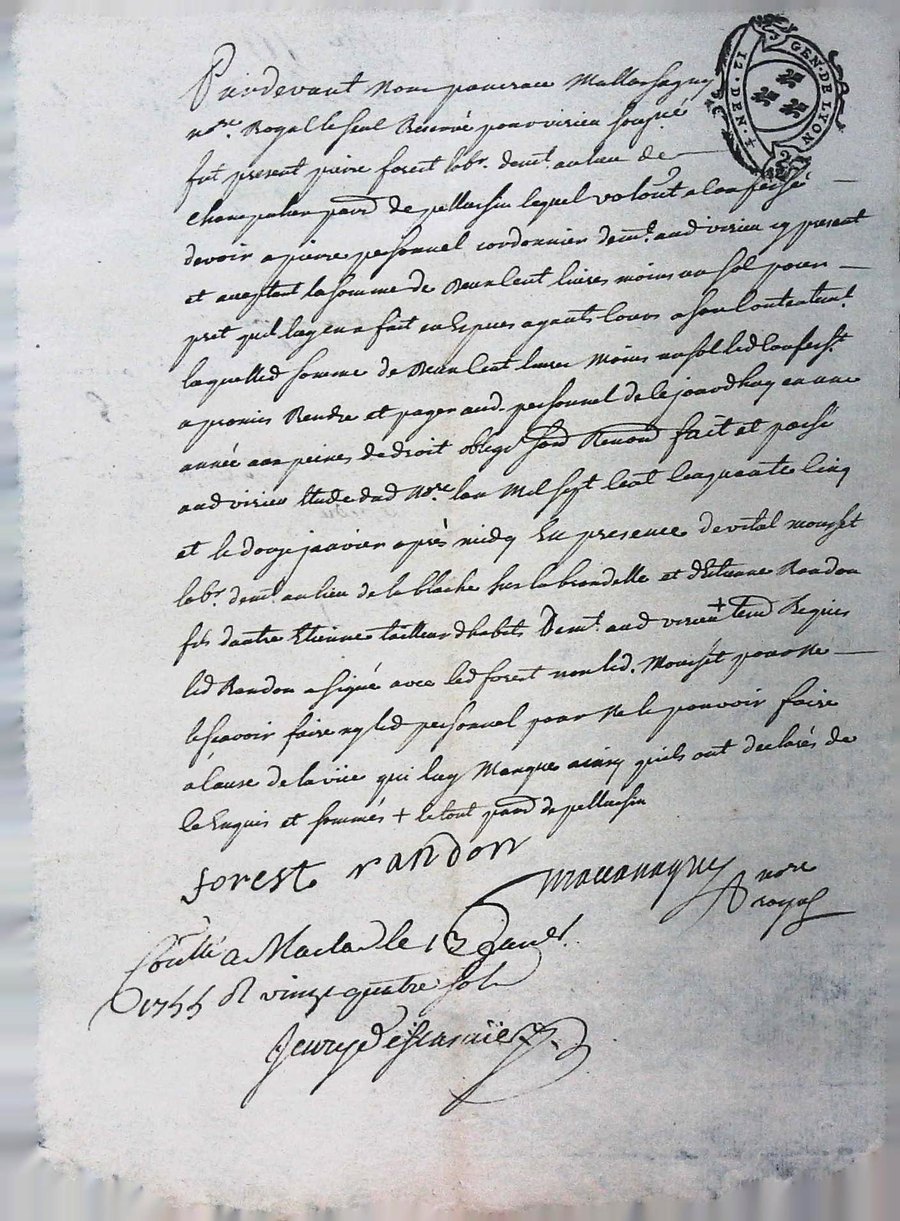 GEN. DE LYON
12. DEN.
Pardevant Nous pancrace Mallassagny
nore. Royal le seul Reservé pour virieu soussigné
fut present pierre forest labr. demt. au lieu de
champailler parr de pellussin lequel volontt a confessé
devoir a pierre personnel cordonnier demt. aud virieu cy present
et aceptant la somme de Deux Cent livres moins un sol pour
pret qu'il luy en a fait en Especes ayants cours a son Contentemt.
laquelled somme de Deux Cent livres Moins un sol led Confesst.
a promis Rendre et payer aud. personnel de ce jourdhuy en une
année aux peines de droit oblige soub Renon fait et passé
aud virieu Etude dud Nore. lan Mil sept Cent Cinquante Cinq
et le douze janvier après midy En presence de vital mousset
labr. demt. au lieu de la blache sur la brondelle et d'Etienne Randon
fils d'autre Etienne tailleur dhabits Demt. aud virieu + temd Requis
led Randon a signé avec led forest non led. Mousset pour Ne
le scavoir faire ny led personnel pour Ne le pouvoir faire
a Cause de la viie qui luy Manque ainsy quils ont declarés de
ce Enquis et sommés + le tout parr de pellussin
forest randon
nore
royal
a Maclas le 13 Janer.
1755 Rt vingt quatre sols